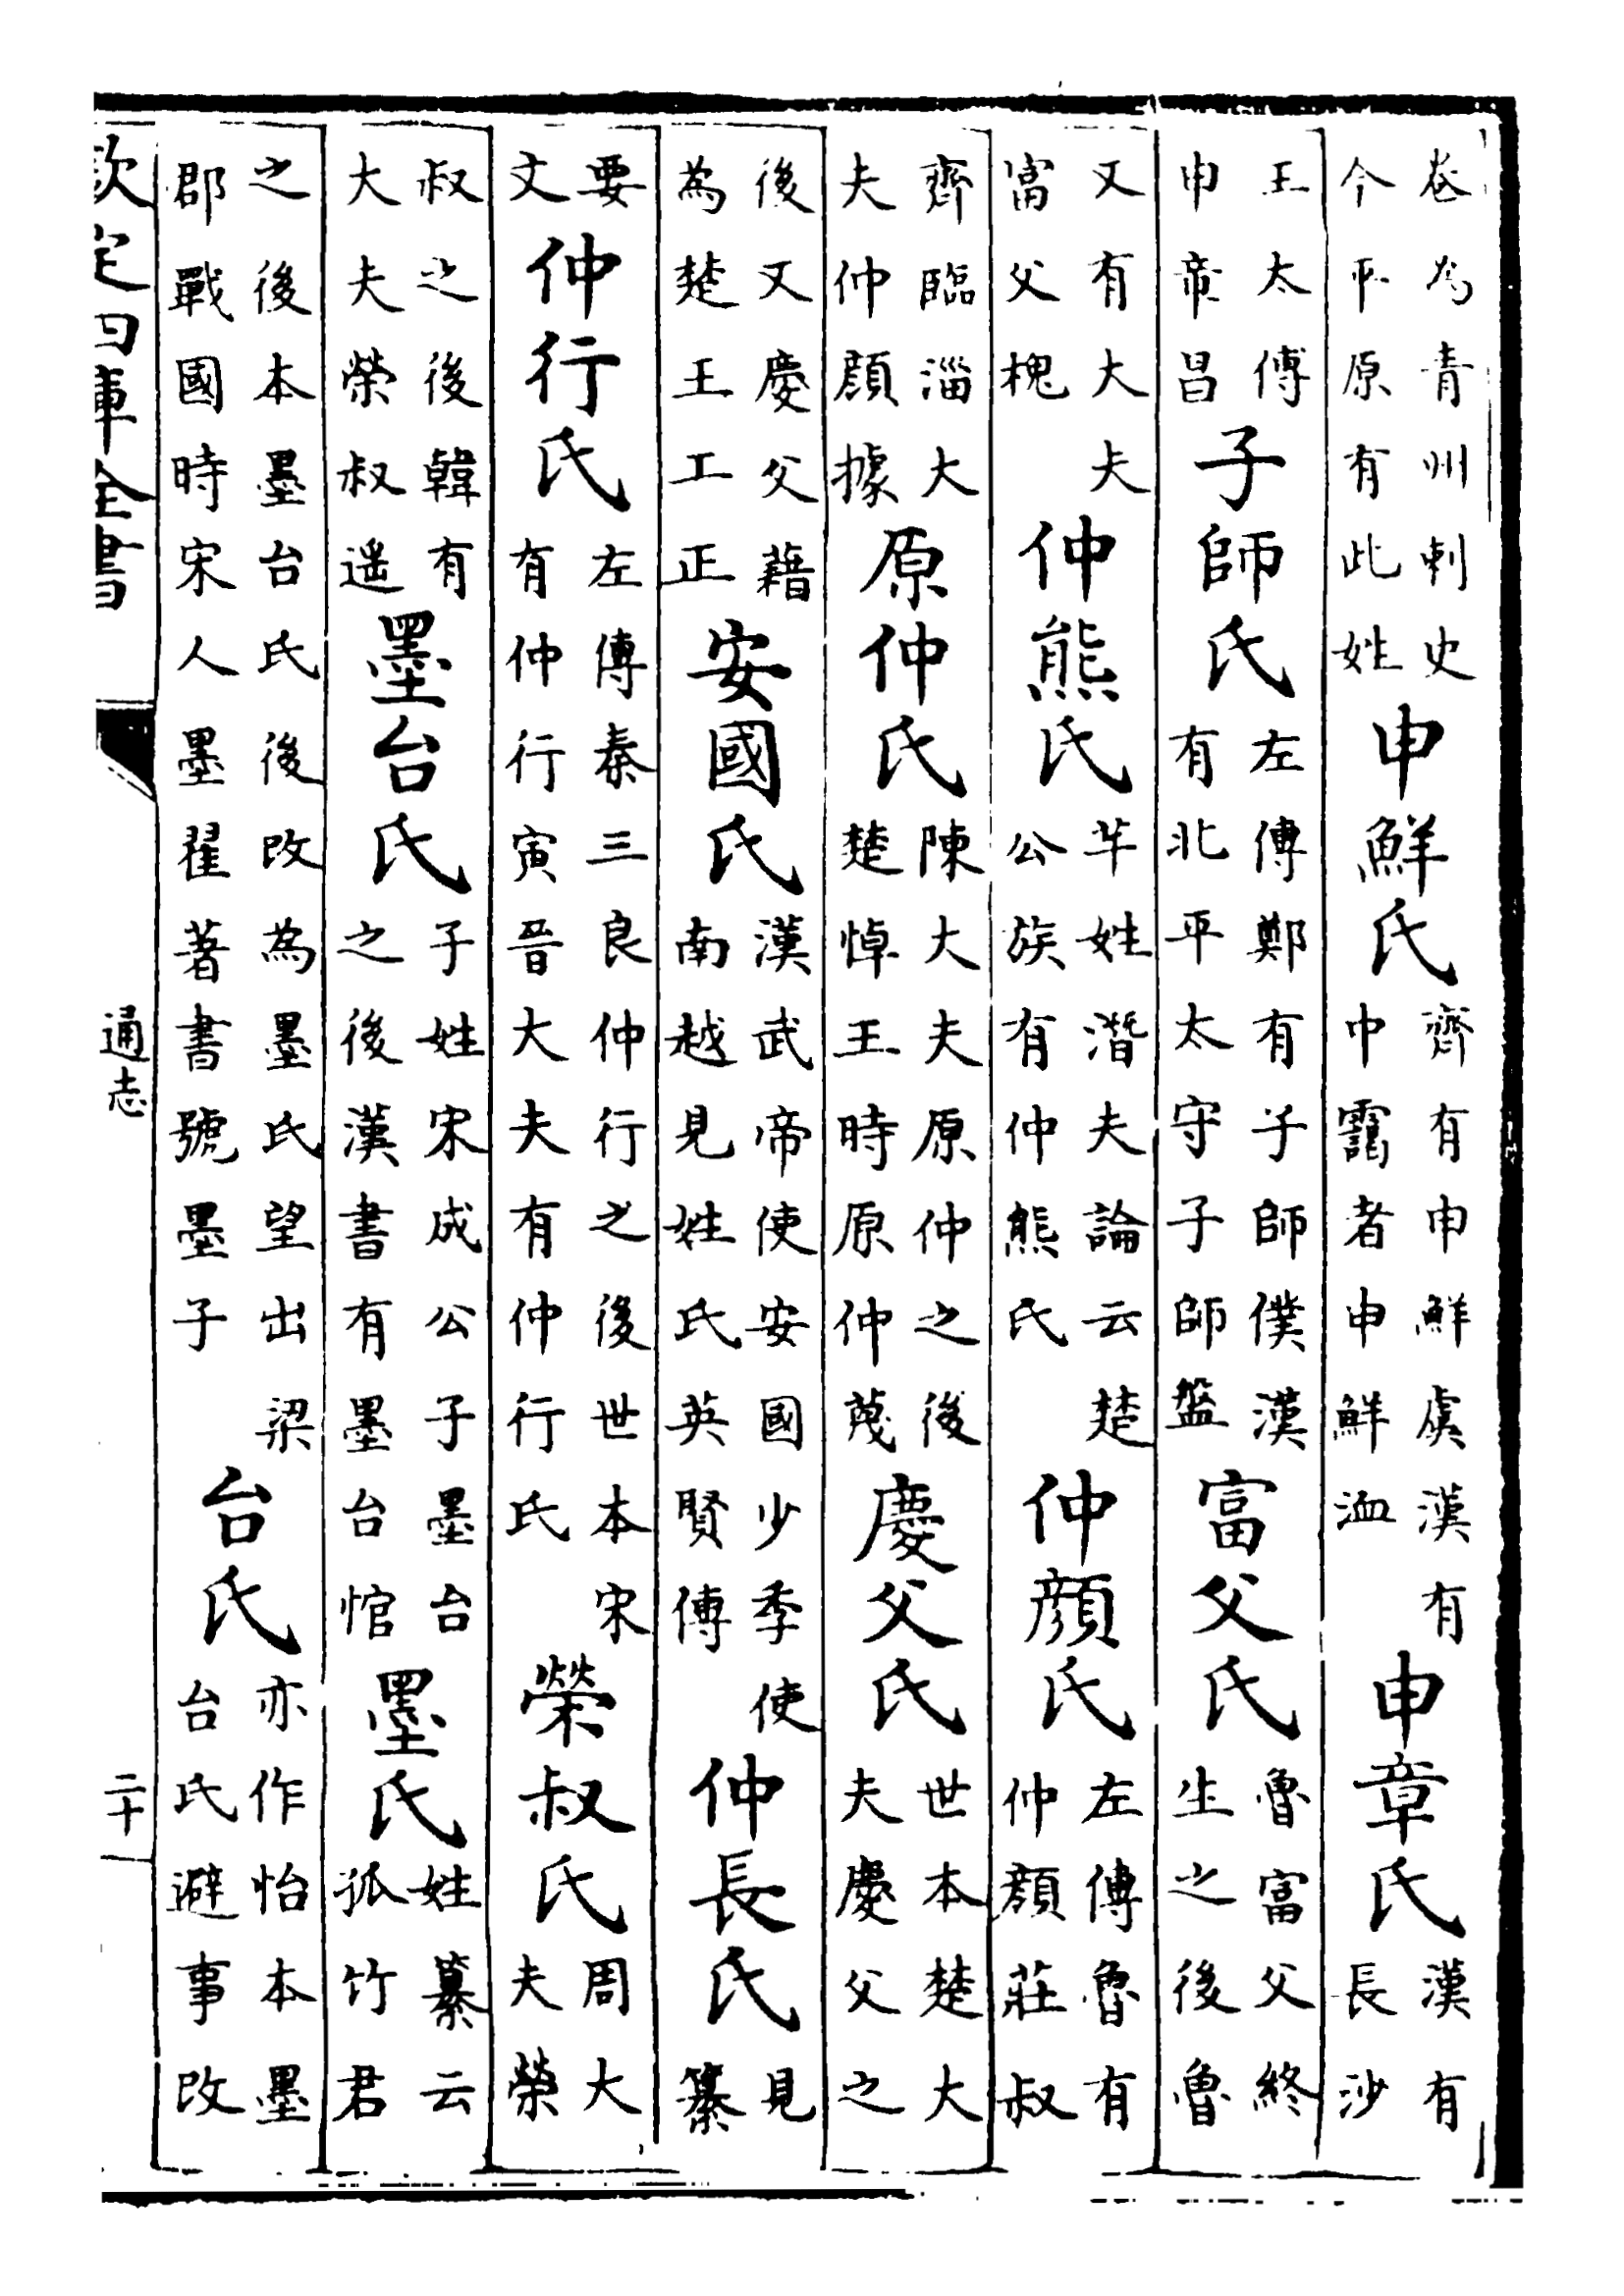 卷為青州刺史今平原有此姓申鮮氏齊有申鮮虞漢有中靄者申鮮洫申章氏漢有長沙
王太傅申帝昌子師氏左傳鄭有子師僕漢有北平太守子師盤富父氏魯富父終生之後魯
又有大夫富父槐仲熊氏芊姓潜夫論云楚公族有仲熊氏仲顔氏左傳魯有仲顔莊叔
齊臨淄大夫仲顔據原仲氏陳大夫原仲之後楚悼王時原仲蔑慶父氏世本楚大夫慶父之
後又慶父藉為楚王工正安國氏漢武帝使安國少季使南越見姓氏英賢傳仲長氏見纂
要文仲行氏左傳秦三良仲行之後世本宋有仲行寅晉大夫有仲行氏榮叔氏周大夫榮
叔之後韓有大夫榮叔遥墨台氏子姓宋成公子墨台之後漢書有墨台悺墨氏姓纂云孤竹君
之後本墨台氏後改為墨氏望出梁郡戰國時宋人墨翟著書號墨子台氏亦作怡本墨台氏避事改
欽定四庫全書
通志
二十一